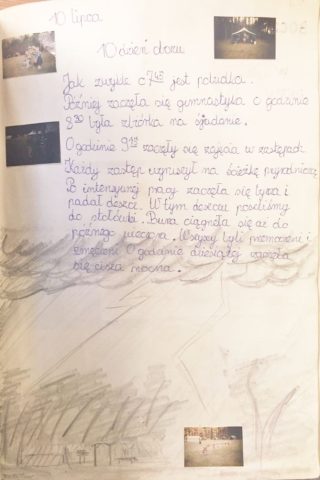 10 lipca
10 dzień obozu
Jak zwykle o 7⁴⁵ jest pobudka.
Później zaczęła się gimnastyka o godzinie
8³⁰ była zbiórka na śniadanie.
O godzinie 9¹⁵ zaczęły się zajęcia w zastępach.
Każdy zastęp wyruszył na ścieżkę przyrodniczą
Po intensywnej pracy zaczęła się burza i
padał deszcz. W tym deszczu poszliśmy
do stołówki. Burza ciągnęła się aż do
późnego wieczora. Wszyscy byli przemoczeni i
zmęczeni O godzinie dziesiątej zaczęła
się cisza nocna.